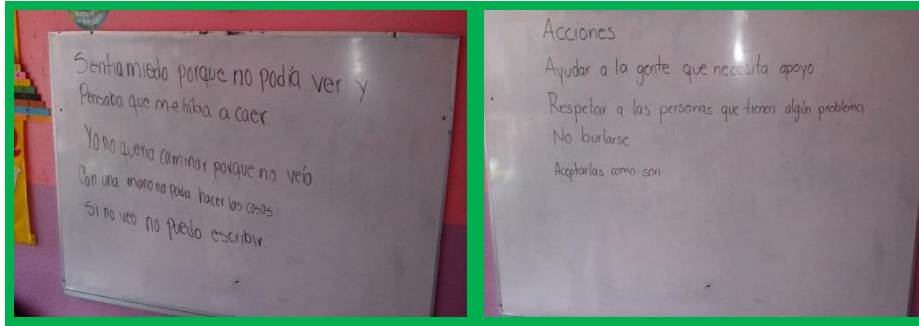 Sentia miedo porque no podía ver y
Pensaba que me hiba a caer.
Yo no queria caminar porque no veía
Con una mano no podia hacer las cosas
Si no veo no puedo escribir.
Acciones
Ayudar a la gente que necesita apoyo
Respetar a las personas que tienen algún problema
No burlarse
Aceptarlas como son